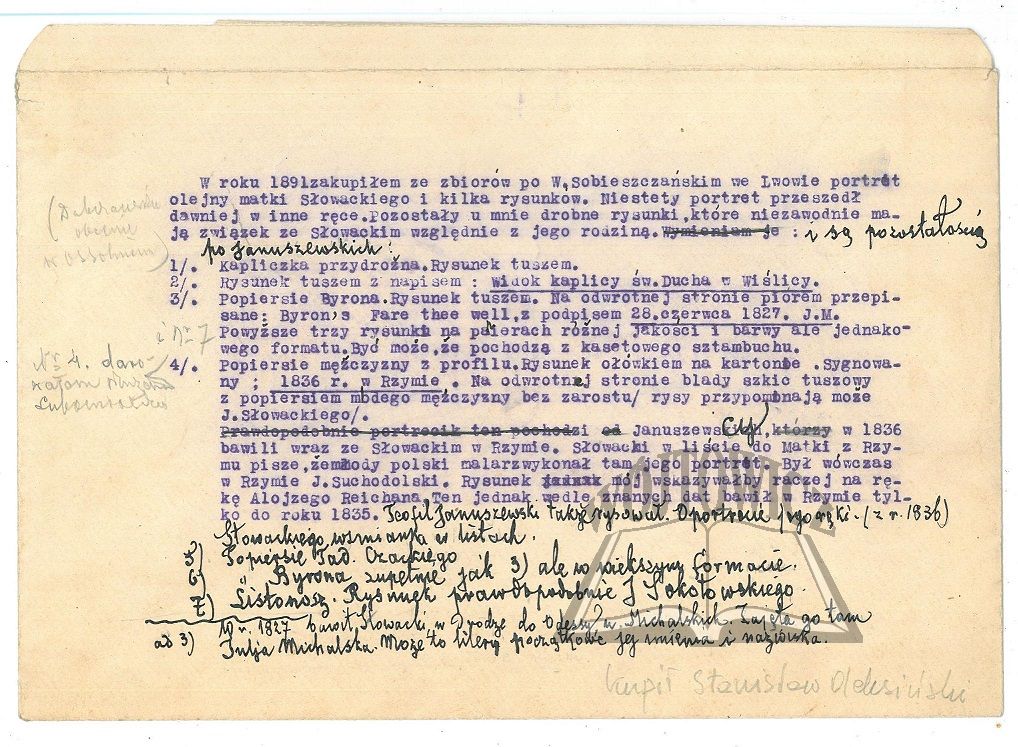 W roku 1891zakupiłem ze zbiorów po W.Sobieszczańskim we Lwowie portret
olejny matki Słowackiego i kilka rysunków. Niestety portret przeszedł
dawniej w inne ręce.Pozostały u mnie drobne rysunki,które niezawodnie ma-
ją związek ze Słowackim względnie z jego rodziną.Wymieniam je : i są pozostałością
po Januszewskich:
1/. Kapliczka przydrożna.Rysunek tuszem.
2/. Rysunek tuszem z napisem : Widok kaplicy św.Ducha w Wiślicy.
3/. Popiersie Byrona.Rysunek tuszem. Na odwrotnej stronie piórem przepi-
sane: Byron's Fare thee well,z podpisem 28.czerwca 1827. J.M.
Powyższe trzy rysunki na papierach różnej jakości i barwy ale jednako-
wego formatu.Być może,że pochodzą z kasetowego sztambuchu.
i Nr 7
Nr 4. daro-
4/. Popiersie mężczyzny z profilu.Rysunek ołówkiem na kartonie .Sygnowa-
ny ; 1836 r. w Rzymie . Na odwrotnej stronie blady szkic tuszowy
z popiersiem młodego mężczyzny bez zarostu/ rysy przypominają może
J.Słowackiego/.
Prawdopodobnie portrecik ten pochodzi od Januszewskich,którzy w 1836
bawili wraz ze Słowackim w Rzymie. Słowacki w liście do Matki z Rzy-
mu pisze,żemłody polski malarzwykonał tam jego portret. Był wówczas
w Rzymie J.Suchodolski. Rysunek mój wskazywałby raczej na rę-
kę Alojzego Reichana.Ten jednak wedle znanych dat bawił w Rzymie tyl-
ko do roku 1835. Teofil Januszewski także rysował. O portrecie jego ręki (z r. 1836)
Słowackiego wzmianka w listach.
5) Popiersie Tad. Czackiego
6) Byrona zupełnie jak 3) ale w większym formacie.
7) Listonosz. Rysunek prawdopodobnie J Sokołowskiego.
ad 3) W r. 1827 bawił Słowacki, w drodze do Odessy u Michalskich. Zajęła go tam
Julja Michalska. Może to litery początkowe jej imienia i nazwiska.
Kupił Stanisław Oleksiński